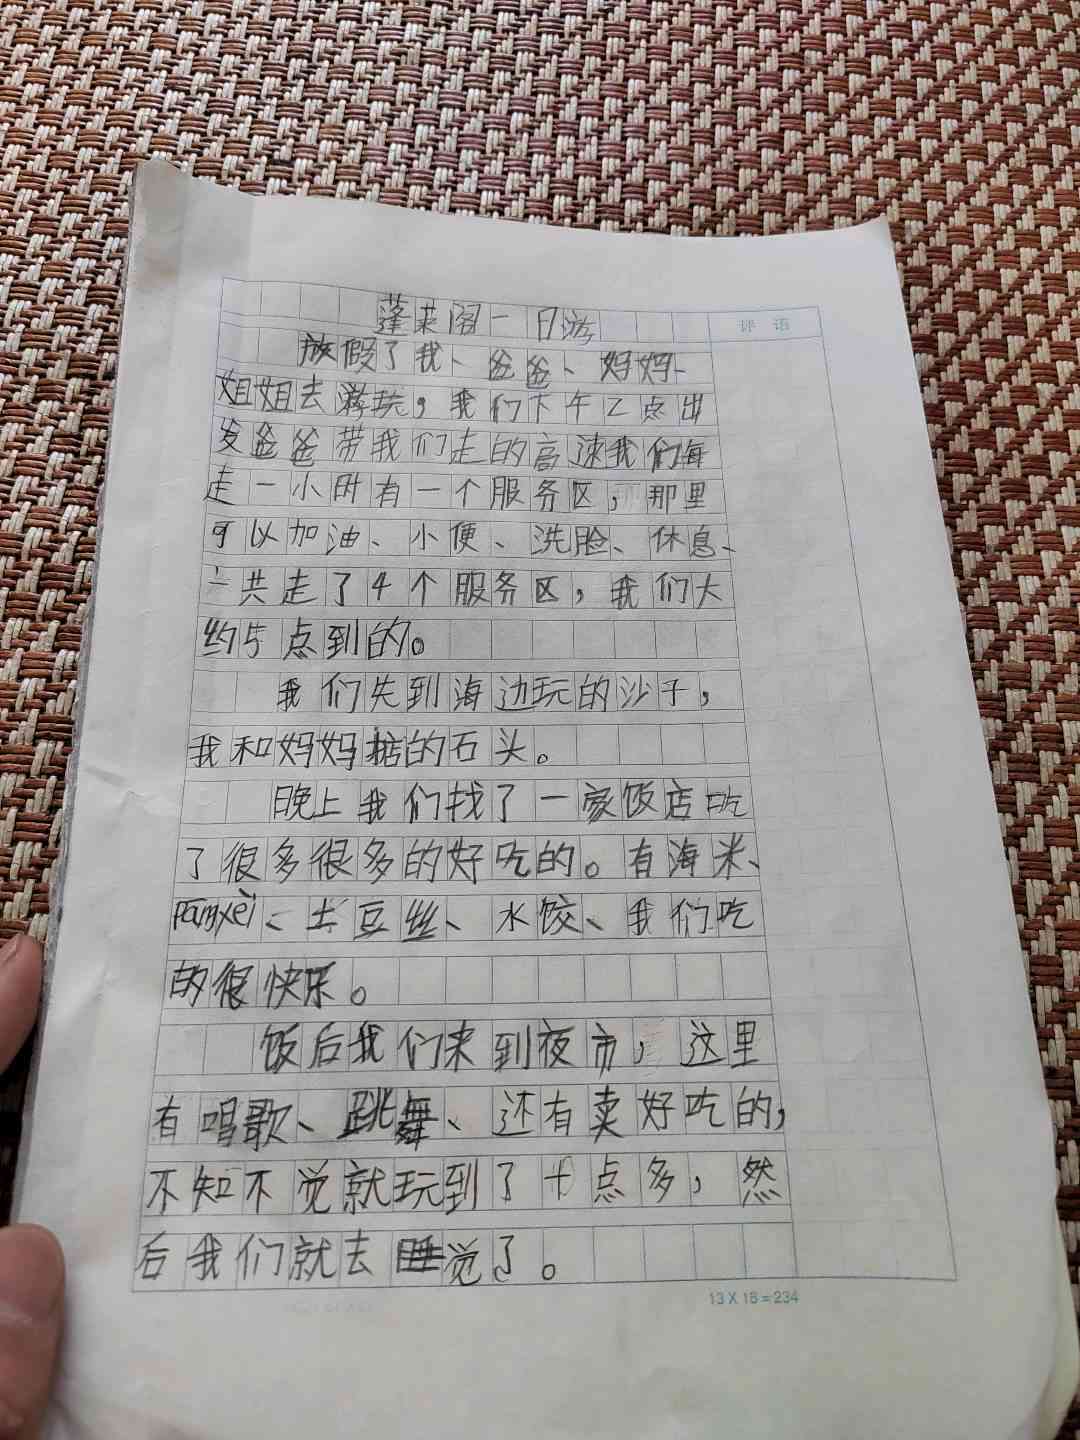 蓬莱阁一日游
评 语
放假了我、爸爸、妈妈、
姐姐去游玩，我们下午2点出
发爸爸带我们走的高速我们每
走一小时有一个服务区，那里
可以加油、小便、洗脸、休息、
一共走了4个服务区，我们大
约5点到的。
我们先到海边玩的沙子，
我和妈妈掂的石头。
晚上我们找了一家饭店吃
了很多很多的好吃的。有海米、
pángxèi、土豆丝、水饺、我们吃
的很快乐。
饭后我们来到夜市，这里
有唱歌、跳舞、还有卖好吃的，
不知不觉就玩到了十点多，然
后我们就去睡觉了。
13 X 18 = 234